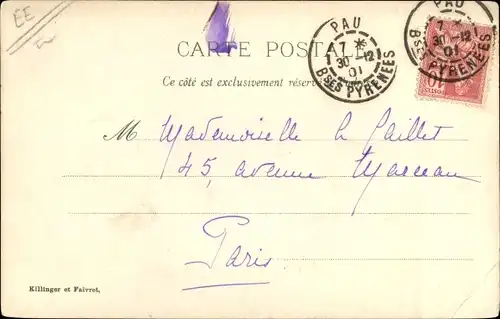 EE
CARTE POSTALE
Ce côté est exclusivement réservé
PAU
7 *
30 - 12
01
BSES PYRENEES
PAU
7 *
30 - 12
01
BSES PYRENEES
POSTES
10
M Mademoiselle
45, avenue Marceau
Paris
Killinger et Faivret.